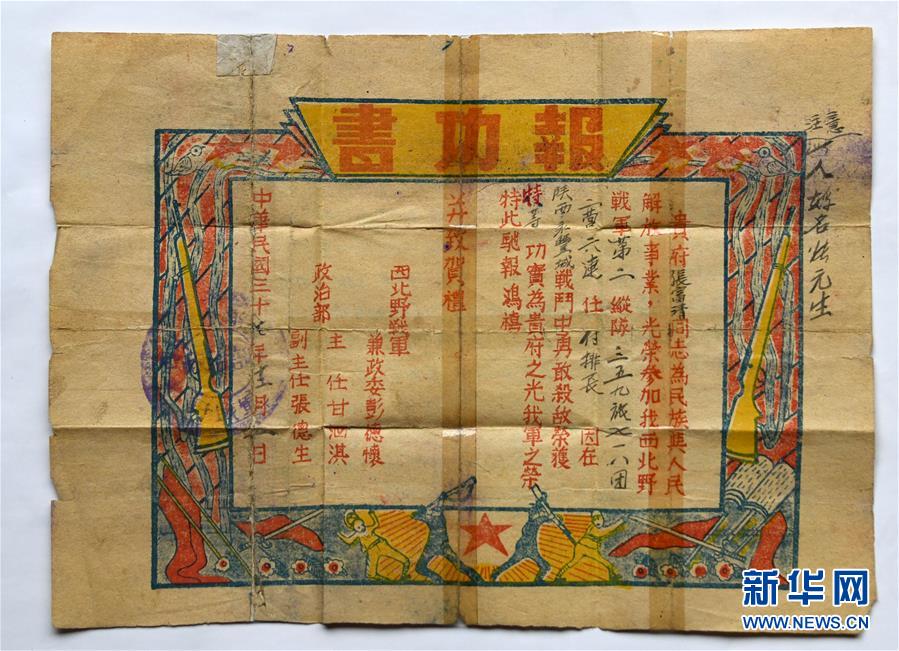 報功書
貴府張富清同志為民族與人民
解放事業，光榮參加我西北野
戰軍第二縱隊三五九旅七一八团
二营六連 任 付排長 因在
陝西永豐城戰鬥中勇敢殺敵榮獲
特等 功實為貴府之光我軍之榮
特此馳報鴻禧
并致賀禮
西北野戰軍
兼政委彭德懷
政治部 主任甘泗淇
副主任張德生
中華民國三十 年 月 日
注意
人姓名 元生
新华网
WWW.NEWS.CN